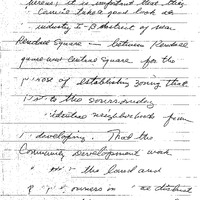 it is important that they
service take a good look at
industry I-B district of near
Kendall Square — between Kendall
Square and Central Square for the
purpose of establishing zoning that
to the surrounding
neighborhoods from
developing. That the
Community Development work
the land and
owners in the district